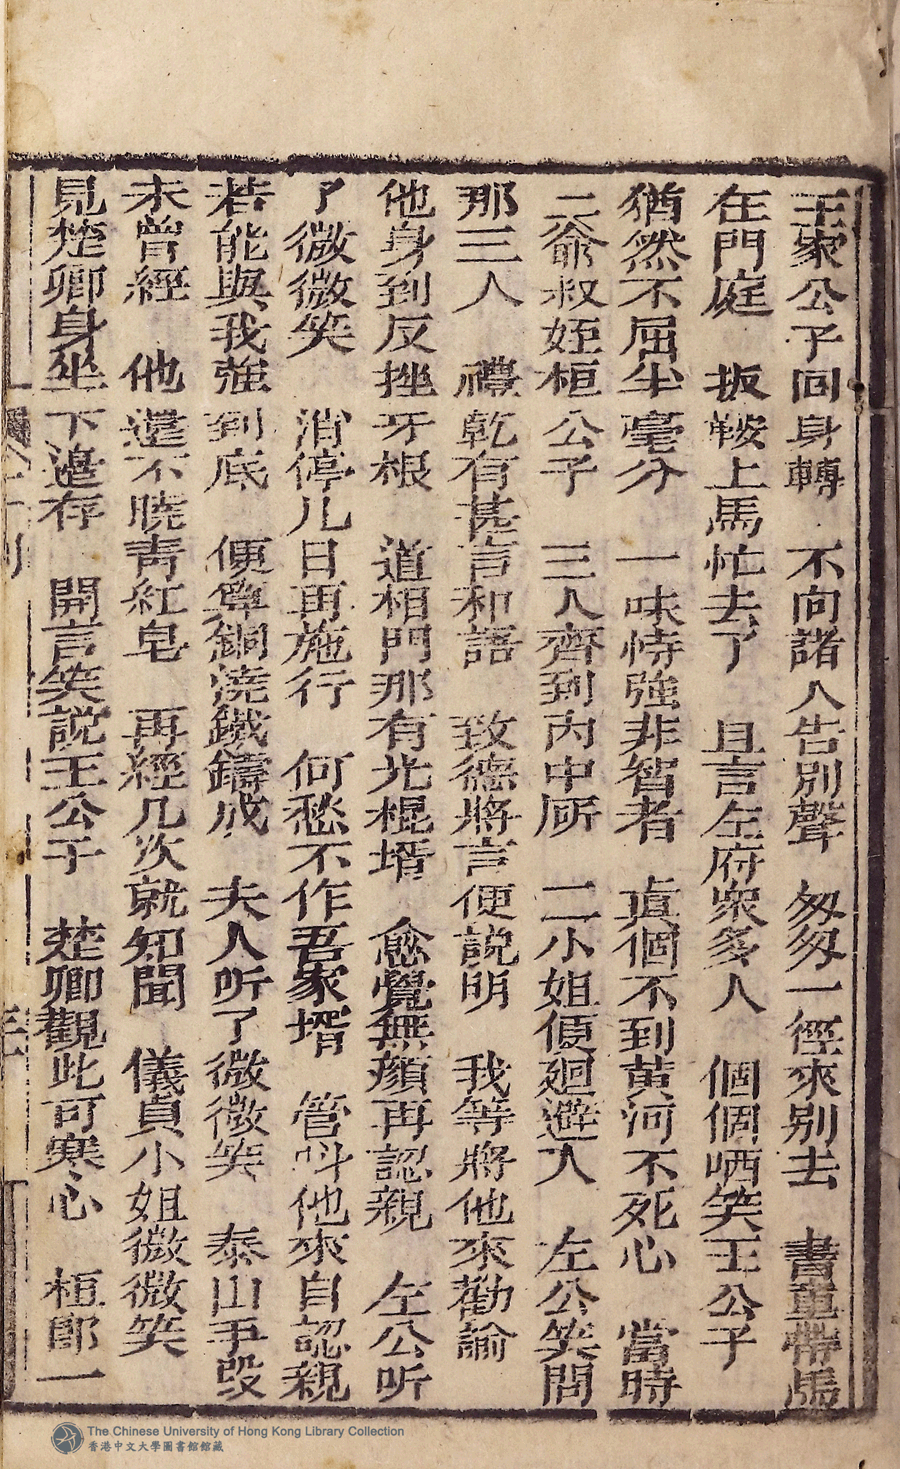 王家公子回身轉　不向諸人告別聲　匆匆一徑來别去　書童帶馬
在門庭　扳鞍上馬忙去了　且言左府衆多人　個個哂笑王公子
猶然不屈半毫分　一味恃強非智者　眞個不到黄河不死心　當時
二爺叔姪桓公子　三人齊到内中厛　二小姐便廻避入　左公笑問
那三人　禮乾有甚言和語　致德將言便說明　我等將他來勸諭
他身到反挫牙根　道相門那有光棍壻　愈覺無顔再認親　左公听
了微微笑　消停儿日再施行　何愁不作吾家壻　管呌他來自認親
若能與我強到底　便算銅澆鐵鑄成　夫人听了微微笑　泰山爭毁
未曾經　他還不曉靑紅皂　再經几次就知聞　儀貞小姐微微笑
見楚卿身坐下邉存　開言笑說王公子　楚卿觀此可寒心　桓郎一
The Chinese University of Hong Kong Library Collection
香港中文大學圖書館館藏